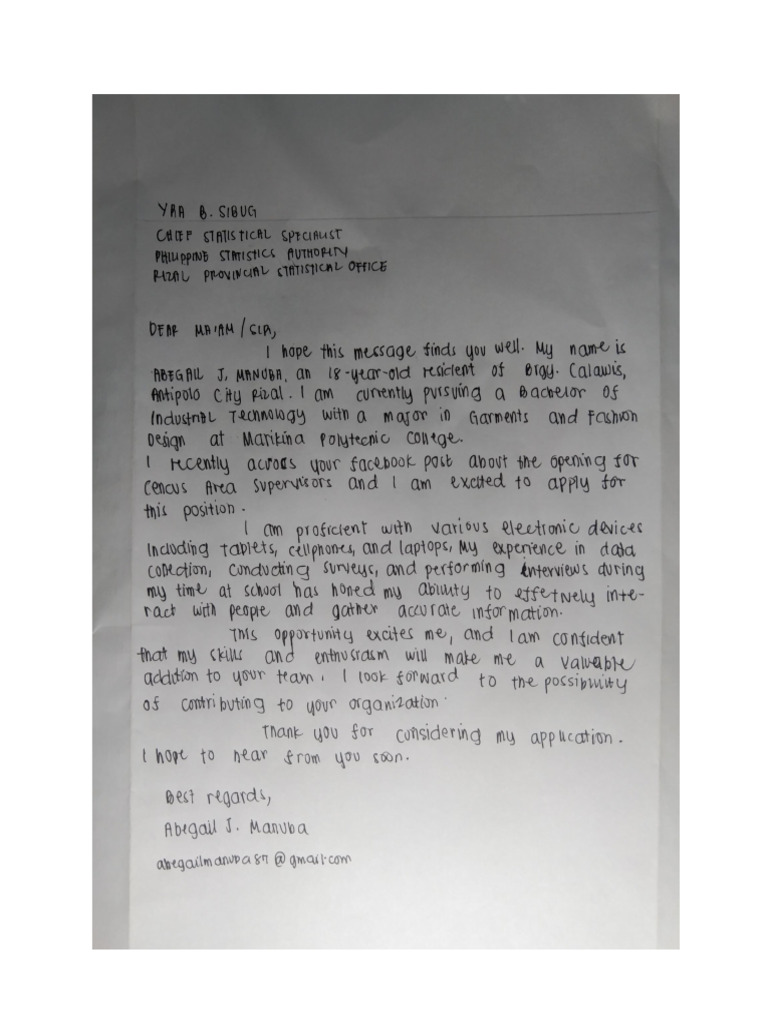 YRA B. SIBUG
CHIEF STATISTICAL SPECIALIST
PHILIPPINE STATISTICS AUTHORITY
RIZAL PROVINCIAL STATISTICAL OFFICE
DEAR MA'AM/SIR,
I hope this message finds you well. My name is
ABEGAIL J. MANUBA, an 18-year-old resident of Brgy. Calawis,
Antipolo City Rizal. I am currently pursuing a Bachelor of
Industrial Technology with a major in Garments and Fashion
Design at Marikina Polytecnic College.
I recently across your facebook post about the opening for
Cencus Area Supervisors and I am excited to apply for
this position.
I am proficient with various electronic devices
Including tablets, cellphones, and laptops, My experience in data
collection, conducting surveys, and performing interviews during
my time at school has honed my ability to effetively inte-
ract with people and gather accurate information.
This opportunity excites me, and I am confident
that my skills and enthusiasm will make me a valuable
addition to your team. I look forward to the possibility
of contributing to your organization.
Thank you for considering my application.
I hope to hear from you soon.
Best regards,
Abegail J. Manuba
abegailmanuba87@gmail.com